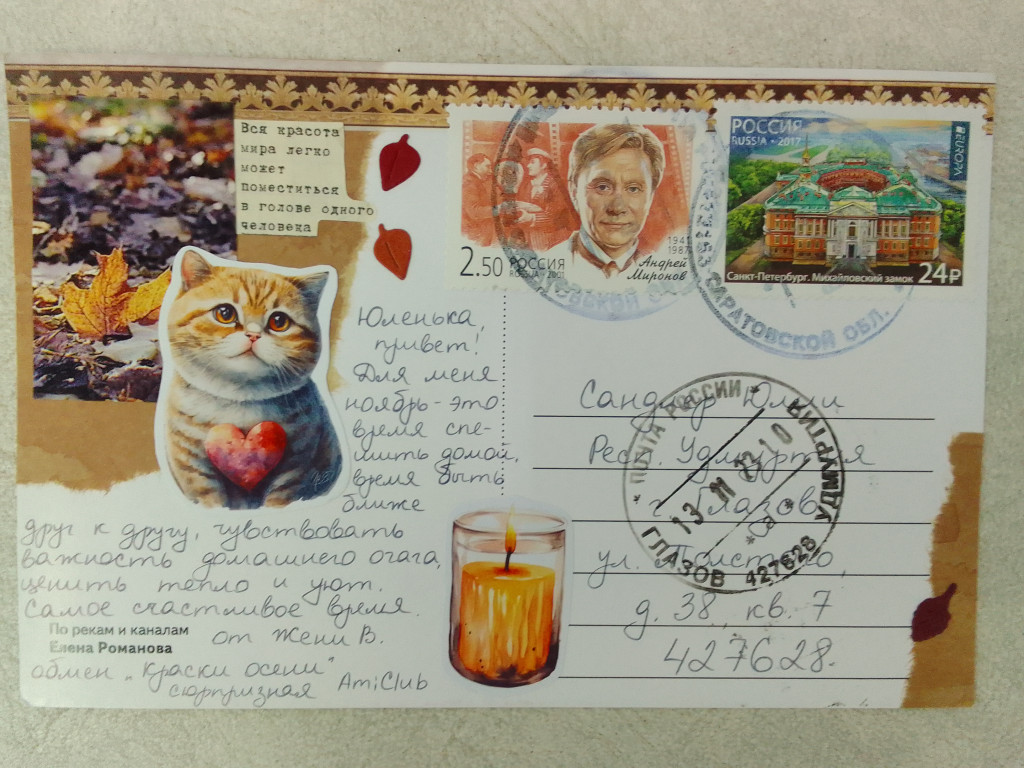 Вся красота
мира легко
может
поместиться
в голове одного
человека
2.50 РОССИЯ
RUSSIA • 2001
1941
1987
Андрей
Миронов
РОССИЯ
RUSSIA • 2017
EUROPA
Санкт-Петербург. Михайловский замок 24₽
САРАТОВСКОЙ ОБЛ.
Юленька,
привет!
Для меня
ноябрь - это
время спе-
шить домой,
время быть
ближе
друг к другу, чувствовать
важность домашнего очага,
ценить тепло и уют.
Самое счастливое время.
от Жени В.
По рекам и каналам
Елена Романова
обмен „Краски осени"
сюрпризная AmiClub
Юлии
Респ. Удмуртия
г. Глазов
ул. Толстого,
д. 38, кв. 7
427628.
ПОЧТА РОССИИ
УДМУРТИЯ
13 11 23 10
ГЛАЗОВ 427628